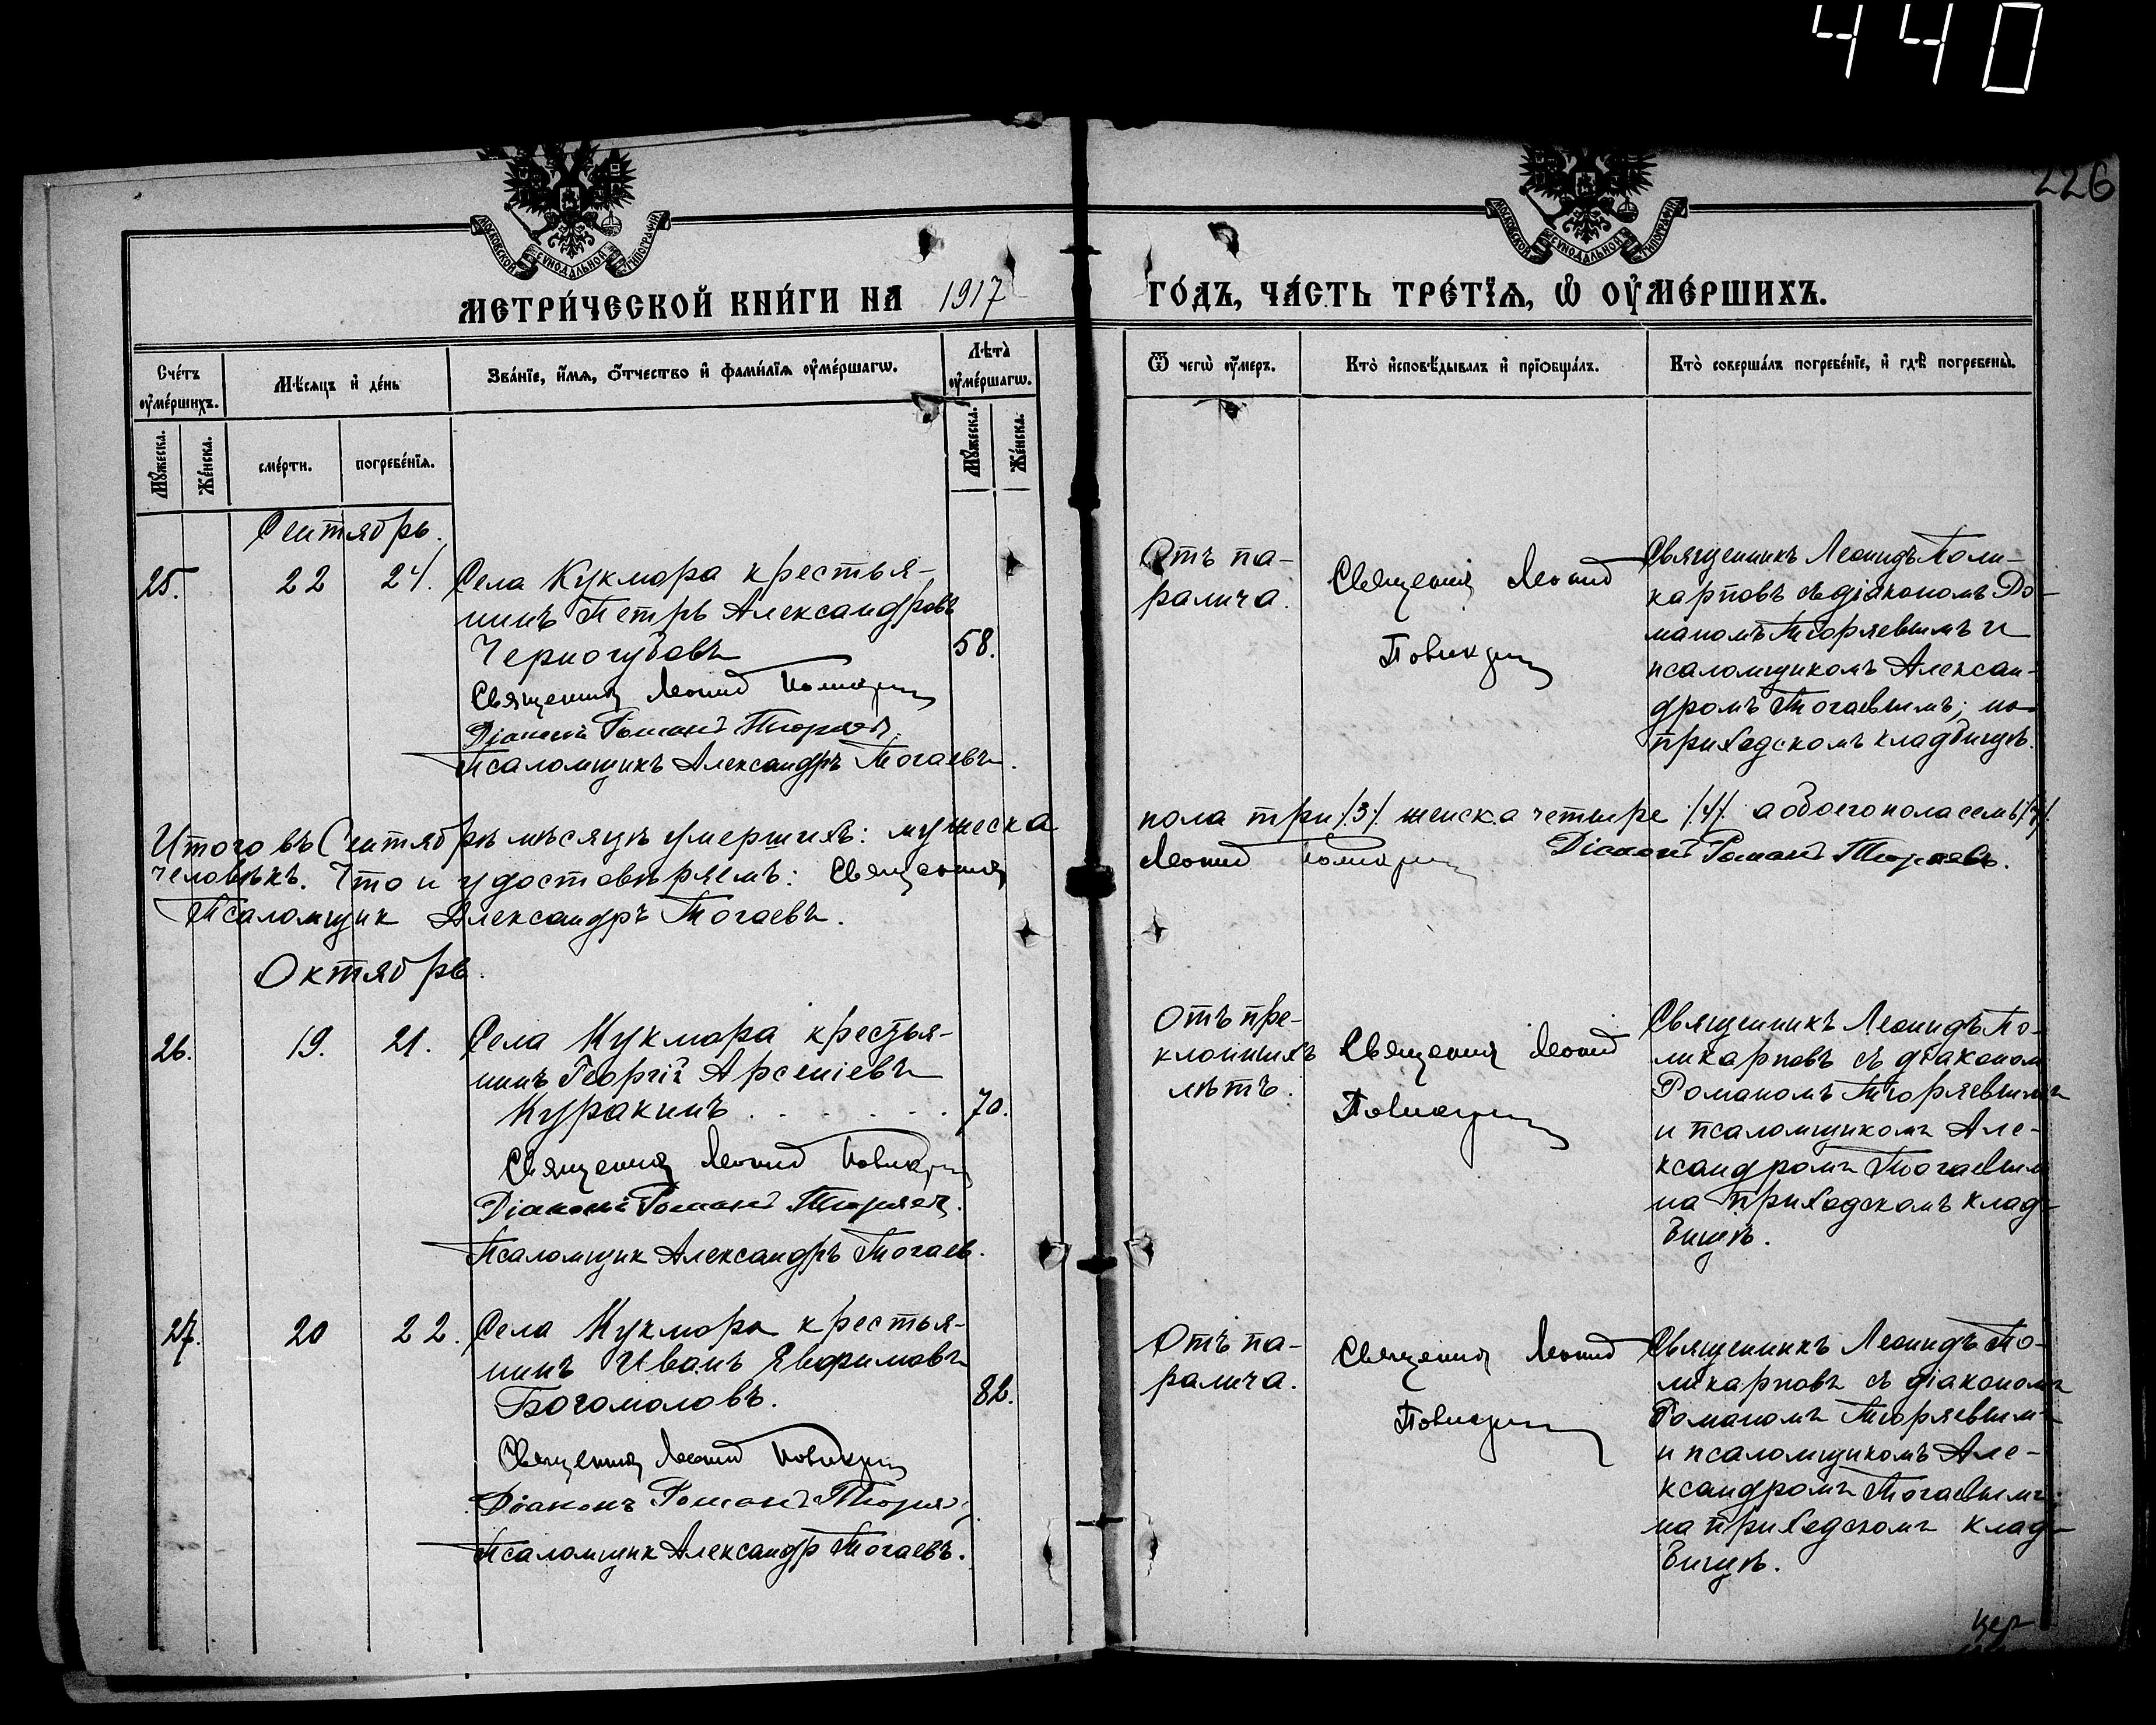 440
226
МОСКОВСКОЙ СѴНОДАЛЬНОЙ ТИПОГРАФІИ
МОСКОВСКОЙ СѴНОДАЛЬНОЙ ТИПОГРАФІИ
МЕТРИ́ЧЕСКОЙ КНИ́ГИ НА 1917
ГО́ДЪ, ЧА́СТЬ ТРЕ́ТЇѦ, Ѽ ОУ҆МЕ́РШИХЪ.
Сче́тъ оу҆ме́ршихъ.
Мѣ́сѧцъ и҆ де́нь
Зва́нїе, и҆́мѧ, ѻ҆́тчество и҆ фами́лїѧ оу҆ме́ршагѡ.
Лѣта̀ оу҆ме́ршагѡ.
Ѿ чегѡ̀ оу҆́меръ.
Кто̀ и҆сповѣ́дывалъ и҆ прїѻбща́лъ.
Кто̀ соверша́лъ погребе́нїе, и҆ гдѣ̀ погребены̀.
Мꙋ́жеска.
Же́нска.
сме́рти.
погребе́нїѧ.
Мꙋ́жеска.
Же́нска.
Сентябрь.
25. 22 24. Села Кукмора крестья-
нинъ Петръ Александровъ
Черногубовъ 58.
Священникъ Леонид Поликарпов
Діаконъ Романъ Тюряевъ.
Псаломщикъ Александръ Тогаевъ.
Отъ па-
ралича.
Священникъ Леонид
Поликарпов
Священникъ Леонидъ Поли-
карповъ съ діакономъ Ро-
маномъ Тюряевымъ и
псаломщикомъ Алексан-
дромъ Тогаевымъ; на
приходскомъ кладбищѣ.
Итого въ Сентябрѣ мѣсяцѣ умершихъ: мужеска
пола три /3/ женска четыре /4/ а обоего пола семь /7/
человѣкъ. Что и удостовѣряемъ: Священникъ
Леонид Поликарпов Діаконъ Романъ Тюряевъ.
Псаломщик Александръ Тогаевъ.
Октябрь.
26. 19. 21. Села Кукмора крестья-
нинъ Георгій Арсеніевъ
Куракинъ . . . . . . 70.
Священникъ Леонид Поликарпов
Діаконъ Романъ Тюряевъ.
Псаломщик Александръ Тогаев.
Отъ пре-
клонныхъ
лѣтъ.
Священникъ Леонид
Поликарпов
Священникъ Леонидъ По-
ликарповъ съ діаконом
Романомъ Тюряевымъ
и псаломщикомъ Але-
ксандромъ Тогаевым
на приходскомъ клад-
бищѣ.
27. 20 22. Села Кукмора крестья-
нинъ Иванъ Евфимовъ
Богомоловъ. 82.
Священникъ Леонид Поликарпов
Діаконъ Романъ Тюряев
Псаломщик Александр Тогаевъ.
Отъ па-
ралича.
Священникъ Леонид
Поликарпов
Священникъ Леонидъ По-
ликарповъ съ діакономъ
Романомъ Тюряевымъ
и псаломщикомъ Але-
ксандромъ Тогаевымъ;
на приходскомъ клад-
бищѣ.